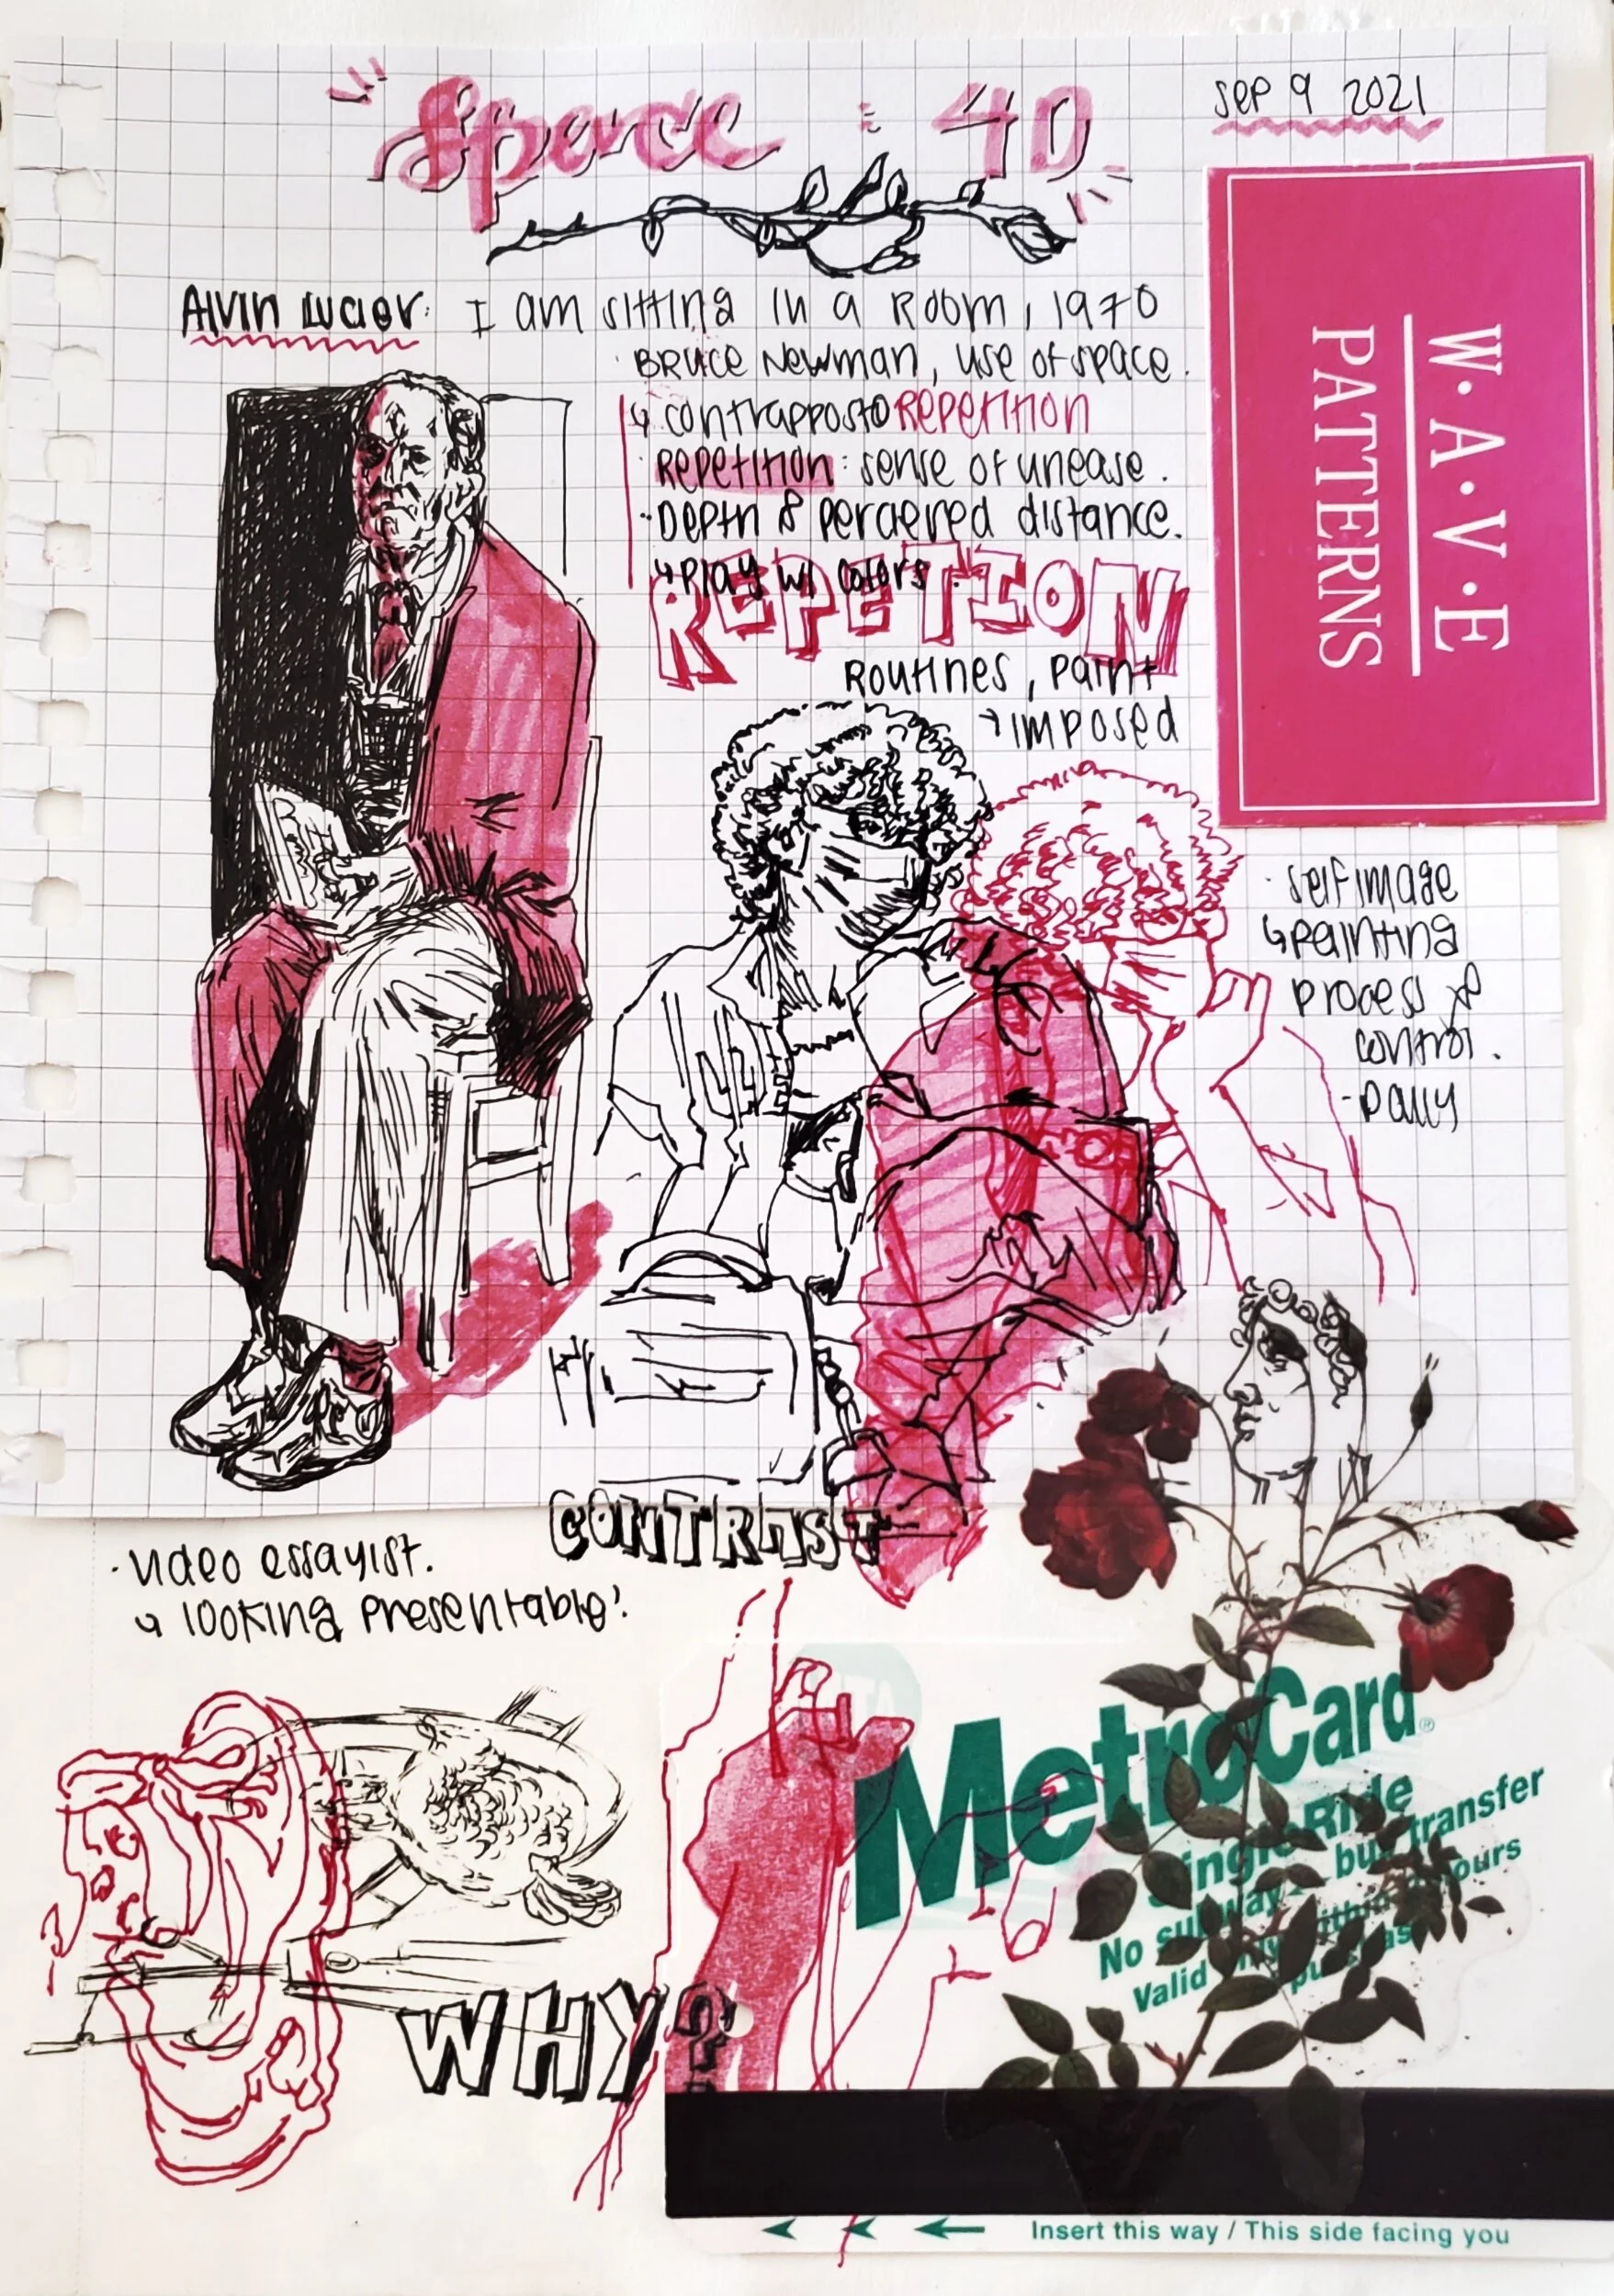 Space : 4D
Sep 9 2021
Alvin Lucier: I am sitting in a Room, 1970
Bruce Newman, use of space.
↳ contrapposto Repetition
Repetition: sense of unease.
·Depth & percieved distance.
↳ Play w/ colors.
REPETION
Routines, paint
→ imposed
W·A·V·E
PATTERNS
· self image
↳ painting
process
control.
CONTRAST
· video essayist.
↳ looking presentable?
WHY?
MetroCard®
Single Ride
No subway – bus transfer
Valid only within 2 hours
of purchase
Insert this way / This side facing you